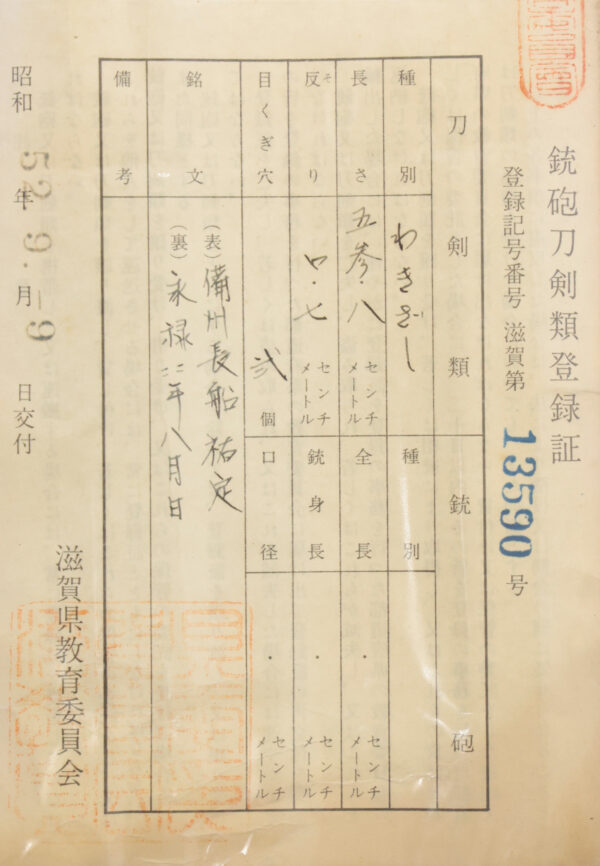 銃砲刀剣類登録証
登録記号番号 滋賀第 13590 号
刀剣類 銃砲
種別 わきざし 種別
長さ 五参.八 センチメートル 全長 ・ センチメートル
反り そ 〇.七 センチメートル 銃身長 ・ センチメートル
目くぎ穴 弐 個 口径 ・ センチメートル
銘文 (表) 備州長船祐定
(裏) 永禄二二年八月日
備考
昭和 52 年 9. 月 -9 日交付
滋賀県教育委員会